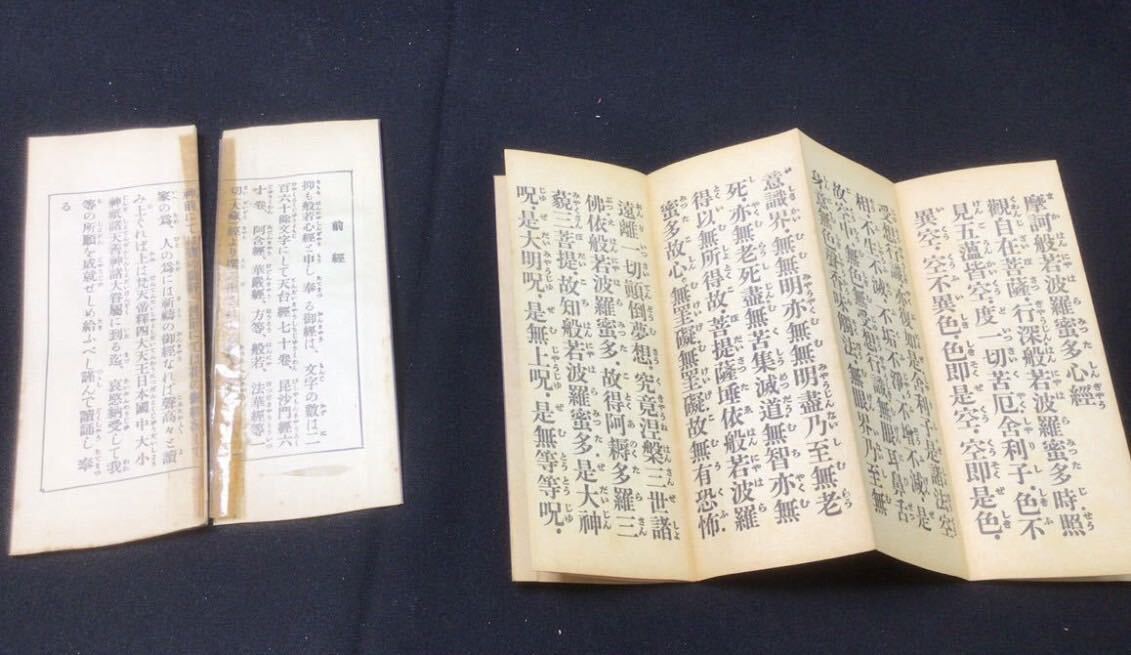 摩訶般若波羅蜜多心經
觀自在菩薩·行深般若波羅蜜多時照
見五蘊皆空·度一切苦厄舍利子·色不
異空·空不異色·色即是空·空即是色·
受想行識·亦復如是舍利子·是諸法空
相·不生不滅·不垢不淨·不增不減·是
故空中·無色無受想行識·無眼耳鼻舌
身意無色聲香味觸法·無眼界·乃至無
意識界·無無明亦無無明盡乃至無老
死·亦無老死盡無苦集滅道無智亦無
得以無所得故·菩提薩埵依般若波羅
蜜多故心無罣礙無罣礙故無有恐怖·
遠離一切顛倒夢想·究竟涅槃三世諸
佛依般若波羅蜜多故得阿耨多羅三
藐三菩提故知般若波羅蜜多是大神
呪·是大明呪·是無上呪·是無等等呪·
前經
抑も般若心經と申し奉る御經は、文字の數は二
百六十餘文字にして天台經七十卷、毘沙門經六
十卷、阿含經、華嚴經、方等、般若、法華經等一
切大藏經より
神前にては
家の爲、人の爲には祈禱の御經なれば聲高々と讀
み上ぐれば上は梵天帝釋四大天王日本國中大小
神祇諸天善神諸大眷屬に到る迄、哀愍納受して我
等の所願を成就せしめ給ふべし謹んで讀誦し奉
る